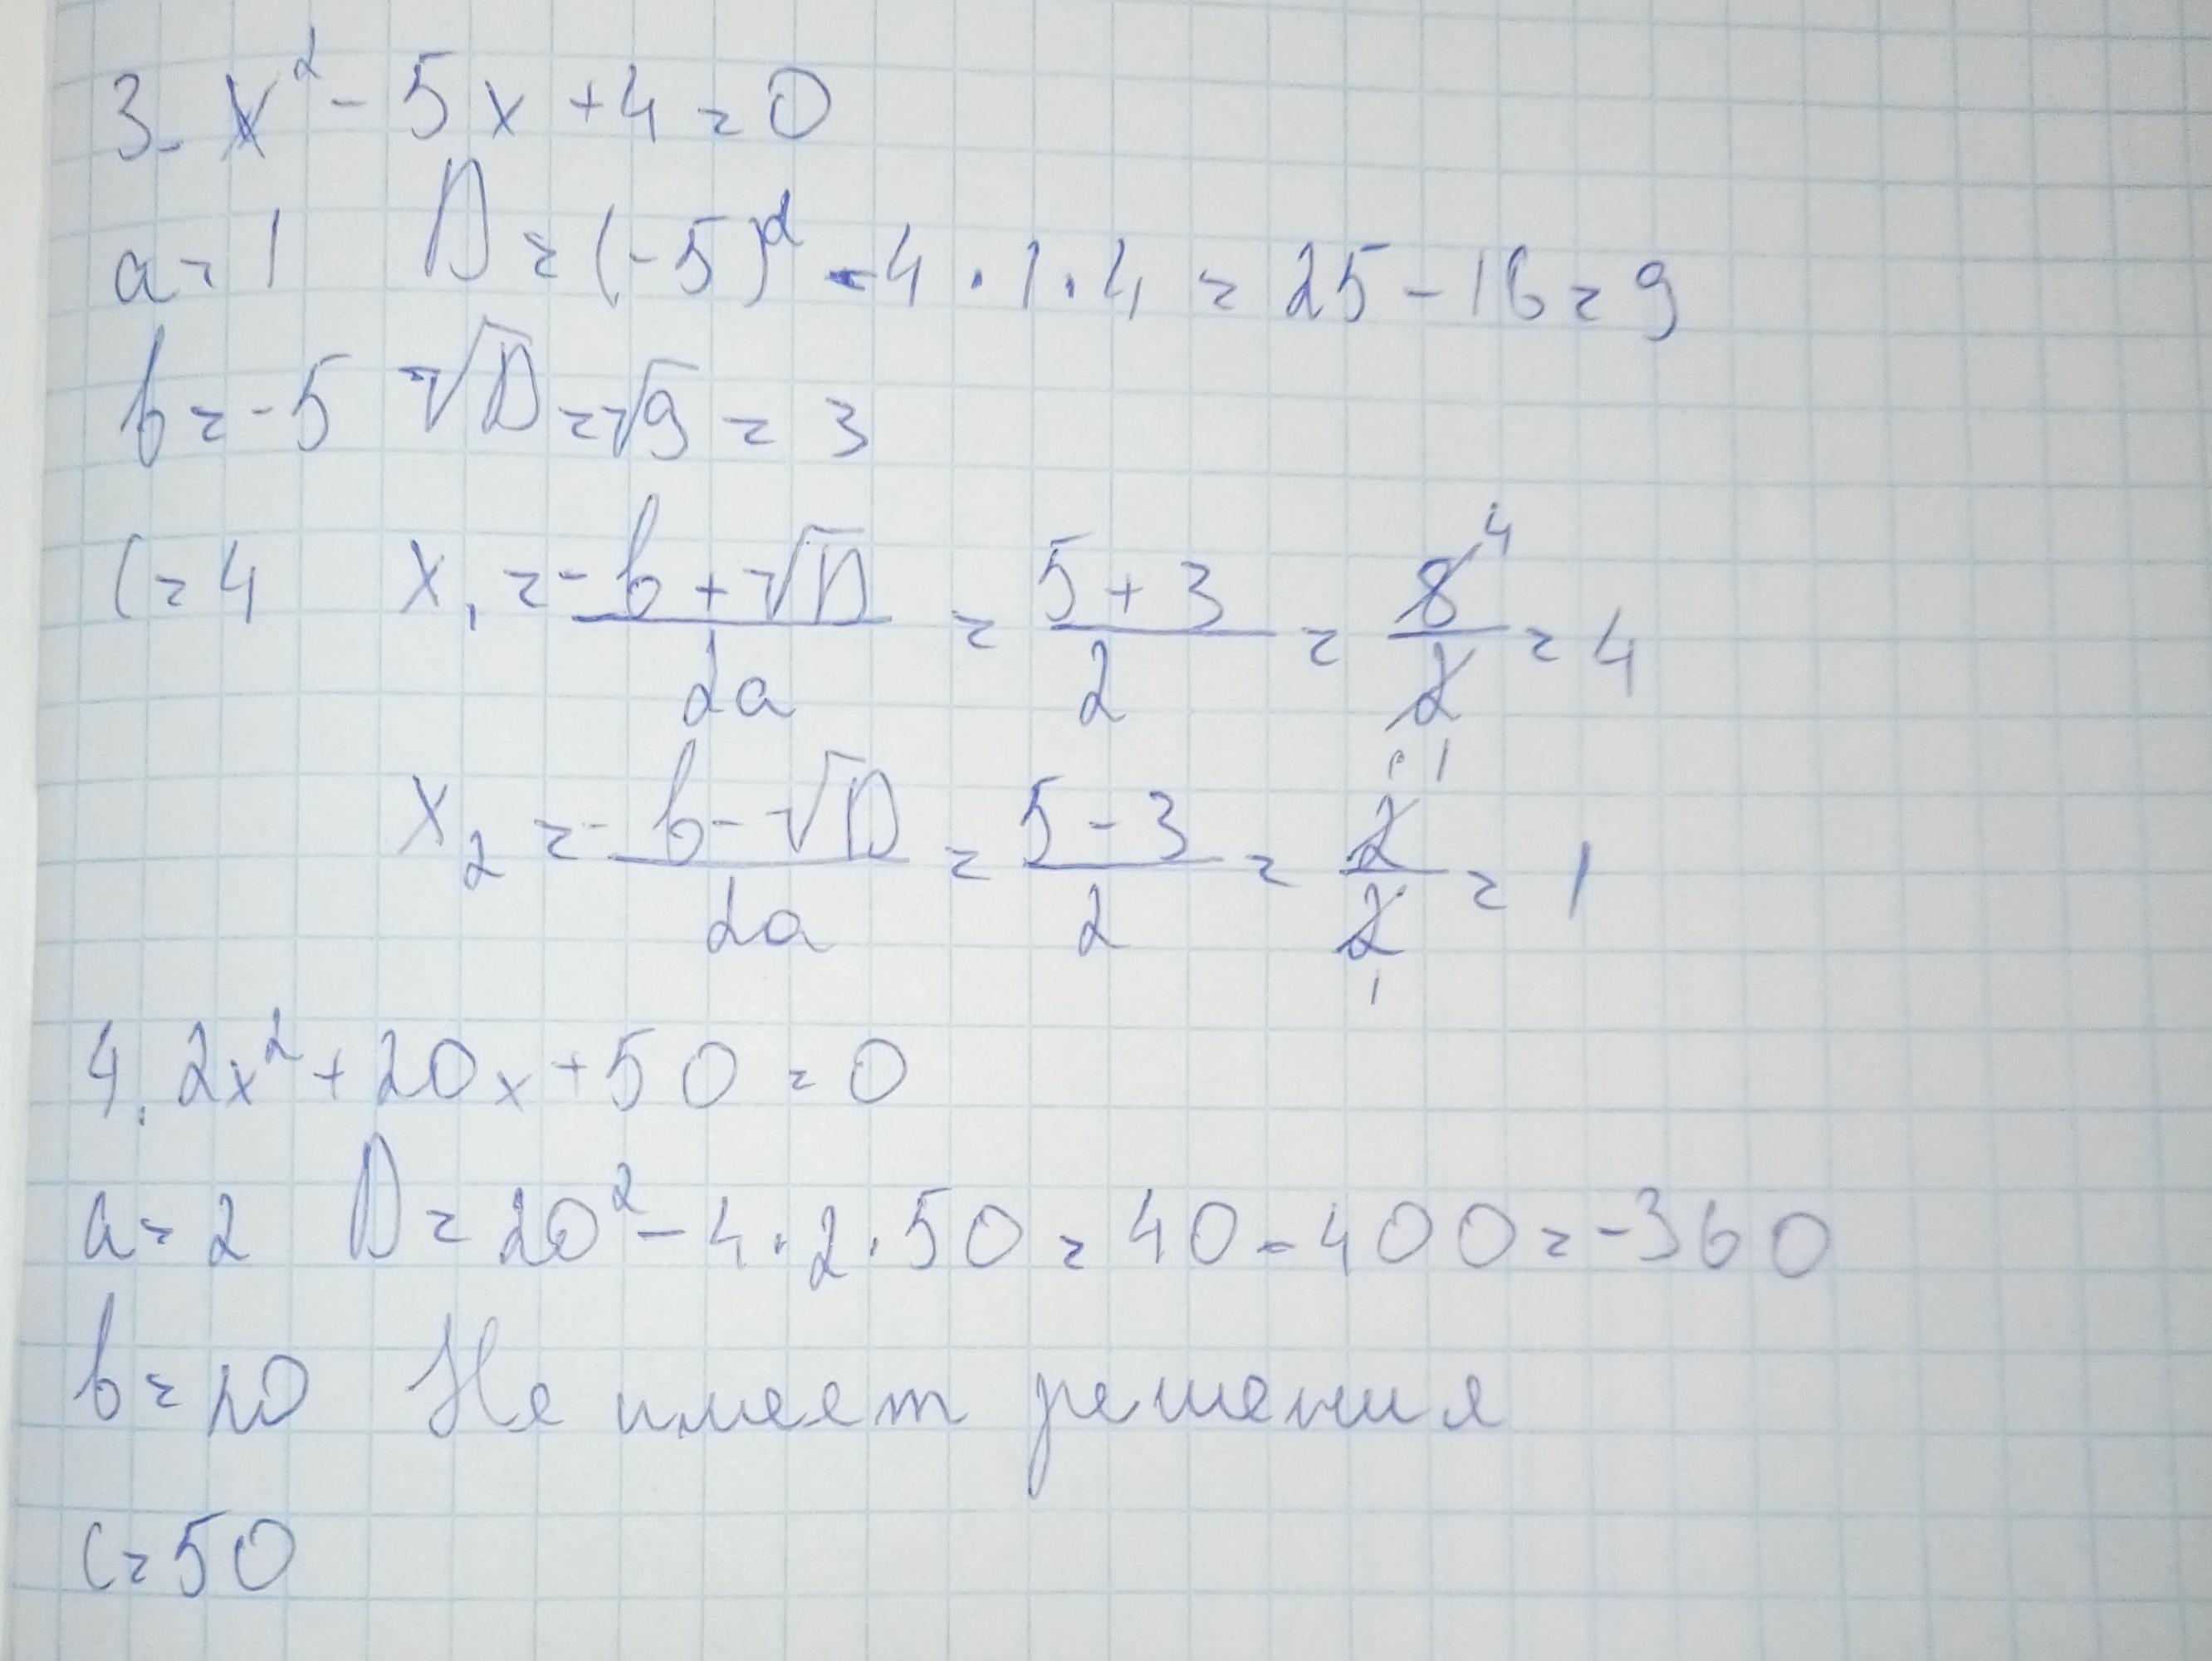 3. x² - 5x + 4 = 0
a = 1 D = (-5)² - 4 · 1 · 4 = 25 - 16 = 9
b = -5 √D = √9 = 3
c = 4 x₁ = (-b + √D)/2a = (5 + 3)/2 = 8/2 = 4
x₂ = (-b - √D)/2a = (5 - 3)/2 = 2/2 = 1
4. 2x² + 20x + 50 = 0
a = 2 D = 20² - 4 · 2 · 50 = 40 - 400 = -360
b = 20 Не имеет решения
c = 50